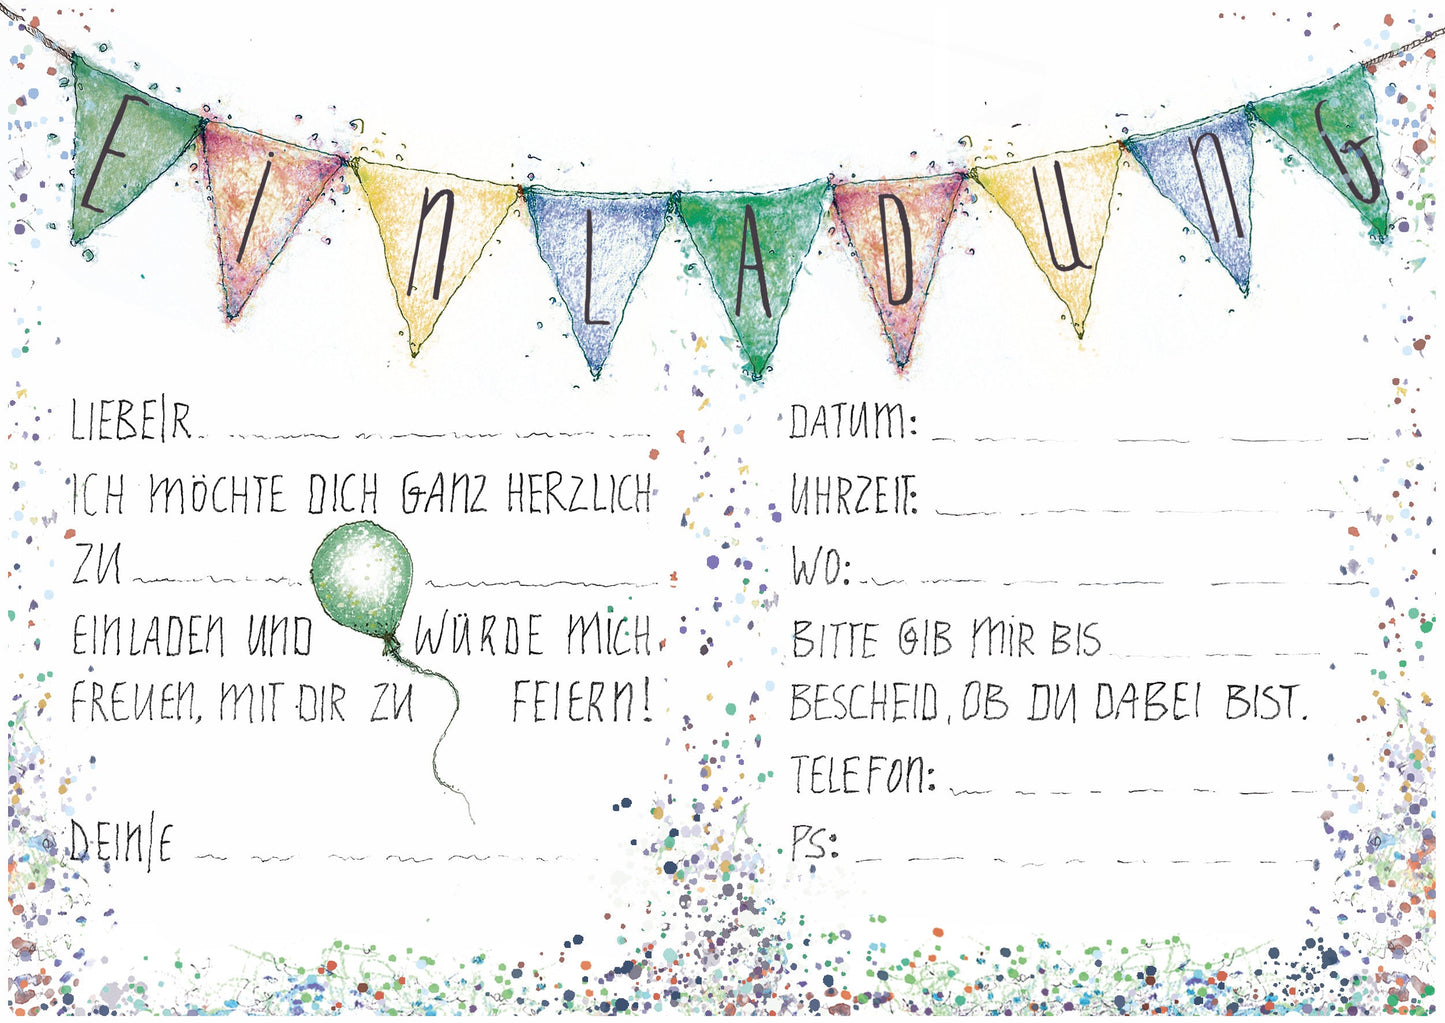 EinLADUnG
LIEBE/R
ICH MÖCHTE DICH GANZ HERZLICH
ZU
EINLADEN UND WÜRDE MICH
FREUEN, MIT DIR ZU FEIERN!
DEIN/E
DATUM:
UHRZEIT:
WO:
BITTE GIB MIR BIS
BESCHEID, OB DU DABEI BIST.
TELEFON:
PS: